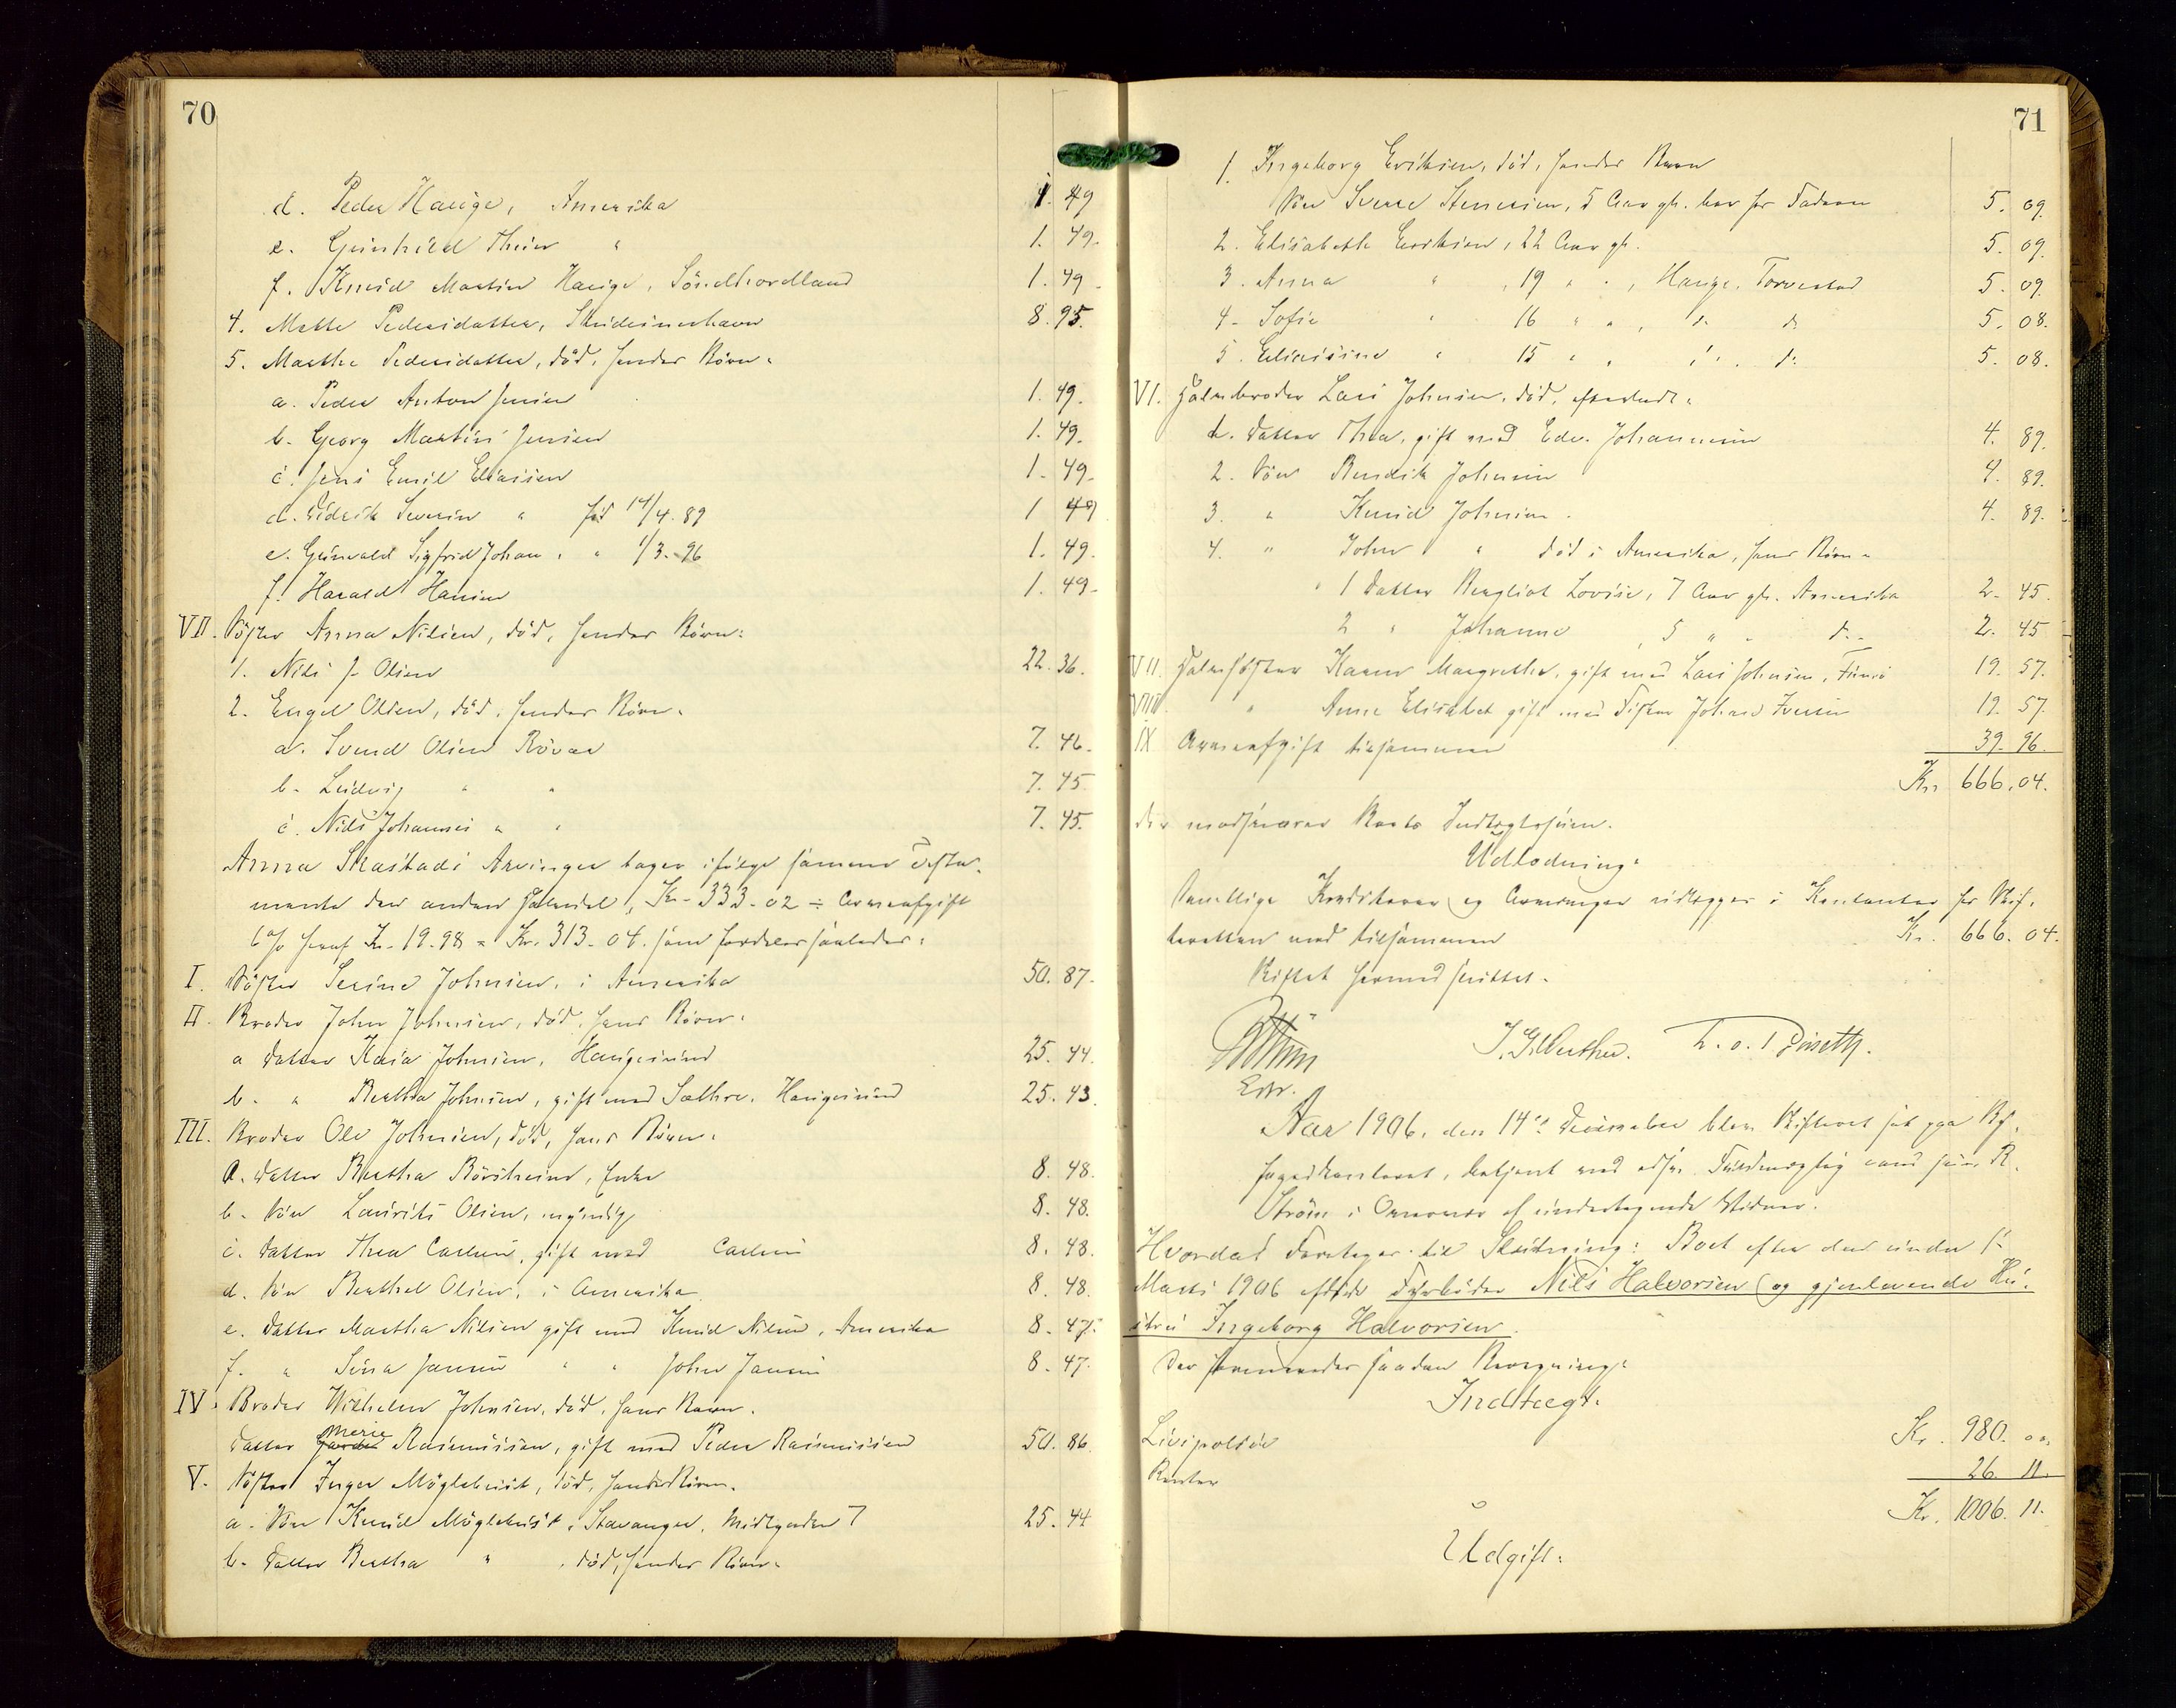 70
d. Peder Hauge, Amerika 1. 49
e. Gunhild Thein " 1. 49.
f. Knud Martin Hauge, Söndhordland 1. 49.
4. Mette Pedersdatter, Skudesneshavn 8. 95.
5. Marthe Pedersdatter, död, hendes Börn:
a. Peder Anton Jensen 1. 49.
b. Georg Martin Jensen 1. 49.
c. Jens Emil Eliassen 1. 49.
d. Didrik Severin " född 14/4. 89 1 49
e. Gunvald Sigfrid Johan " " 1/3. 96 1. 49.
f. Harald Hansen 1. 49.
VII. Söster Anna Nilsen, död, hendes Börn:
1. Nils J. Olsen 22. 36.
2. Engel Olsen, död, hendes Börn:
a. Svend Olsen Rövær 7. 46.
b. Ludvig " " 7. 45
c. Nils Johannes " " 7. 45.
Anna Skastads Arvinger tager ifölge samme Testa-
mente den anden Halvdel, Kr. 333.02 ÷ Arveafgift
6% heraf Kr. 19.98 = Kr. 313.04. som fordeles saaledes:
I. Söster Serine Johnsen, i Amerika 50. 87.
II. Broder John Johnsen, död, hans Börn:
a Datter Kaia Johnsen, Haugesund 25. 44.
b. " Bertha Johnsen, gift med Sæthre, Haugesund 25. 43.
III. Broder Ole Johnsen, död, hans Börn:
a. Datter Bertha Börsheim, Enke 8. 48.
b. Sön Laurits Olsen, myndig 8. 48.
c. Datter Thea Carlsen, gift med Carlsen 8. 48.
d. Sön Berthel Olsen, i Amerika 8. 48.
e. Datter Martha Nilsen gift med Knud Nilsen, Amerika 8. 47.
f. " Sina Jansen " " John Jansen 8. 47.
IV. Broder Wilhelm Johnsen, död, hans Barn:
Datter Merie Rasmussen, gift med Peder Rasmussen 50. 86.
V. Söster Inger Möglebust, död, hendes Börn:
a. Sön Knud Möglebust, Stavanger, Midtgaden 7 25. 44
b. Datter Bertha " , död, hendes Börn:
71
1. Ingeborg Eriksen, död, hendes Barn
Sön Sverre Stenersen, 5 Aar gl. bor hos Faderen 5. 09.
2. Elisabeth Eriksen, 22 Aar gl. 5. 09.
3. Anna " , 19 " " , Hauge, Torvestad 5. 09.
4. Sofie " 16 " " , d. d. 5. 08.
5. Eliassine " 15 " " , d. d. 5. 08.
VI. Halvbroder Lars Johnsen, död, efterladt:
1. Datter Thea, gift med Edv. Johannesen 4. 89.
2. Sön Bendik Johnsen 4. 89.
3. " Knud Johnsen 4. 89.
4. " John " död i Amerika, hans Börn:
1 Datter Bergliot Lovise, 7 Aar gl. Amerika 2. 45.
2 " Johanne , 5 " " d. 2. 45
VII. Halvsöster Karen Margrethe, gift med Lars Johnsen, 19. 57.
VIII. " Anne Elisabet gift med Fisker Johnsen 19. 57.
IX Arveafgift tilsammen 39. 96.
Kr. 666.04.
der modsvarer Boets Indtægtssum.
Udlodning:
Samtlige Kreditorer og Arvinger udlægges i Kontanter hos Skif-
teretten med tilsammen Kr. 666. 04.
Skiftet hermed sluttet.
Edv.
Aar 1906. den 14de December blev Skifteret sat paa By-
fogedkontoret, betjent med edsv. Fuldmægtig cand. jur. R.
Ström i Overvær af undertegnede Vidner.
Hvorda foretages til Slutning: Boet efter den under 1.
Marts 1906 afdøde Fyrböder Nils Halvorsen og gjenlevende Hu-
stru Ingeborg Halvorsen.
Der fremvoder saadan Beregning:
Indtægt.
Livspolise Kr. 980. 00
Renter 26. 11.
Kr. 1006. 11.
Udgift: